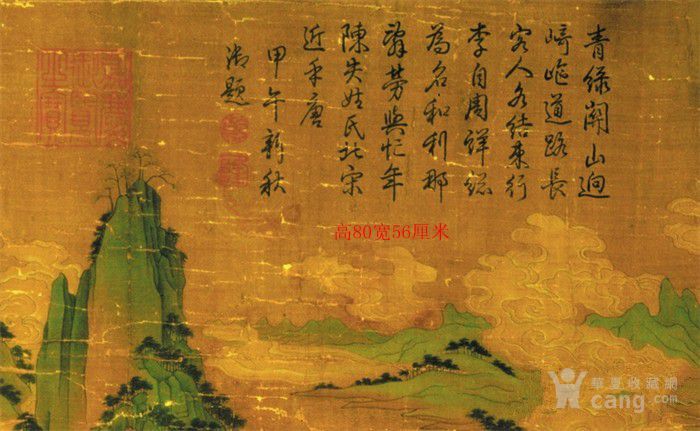 青綠關山迥
崎嶇道路長
客人各結束行
李自周詳總
為名和利那
辭勞與忙年
陳失姓氏北宋
近乎唐
甲午新秋
御題
高80宽56厘米
華夏收藏網
cang.com